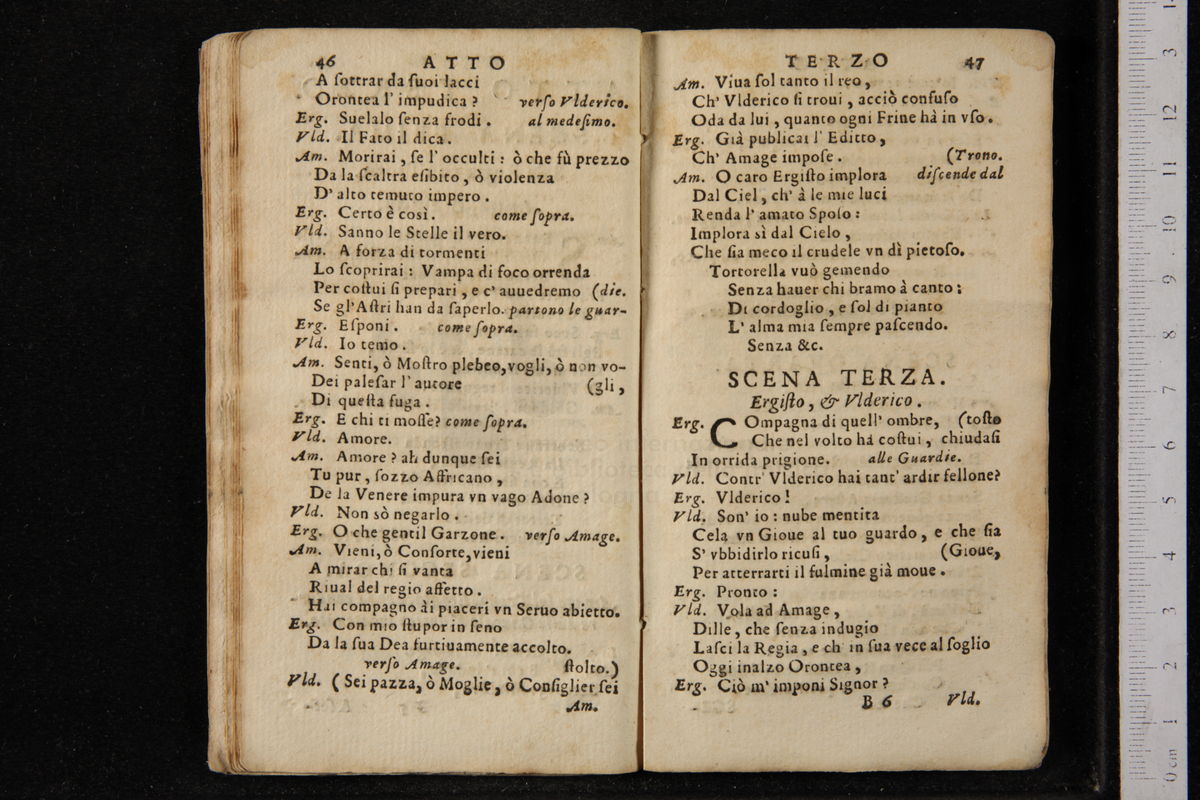 46 ATTO
A ſottrar da ſuoi lacci
Orontea l' impudica ? verſo Vlderico.
Erg. Suelalo ſenza frodi . al medeſimo.
Vld. Il Fato il dica .
Am. Morirai , ſe l' occulti : ò che fù prezzo
Da la ſcaltra eſibito , ò violenza
D' alto temuto impero .
Erg. Certo è così. come ſopra.
Vld. Sanno le Stelle il vero.
Am. A forza di tormenti
Lo ſcoprirai : Vampa di foco orrenda
Per coſtui ſi prepari , e c' auuedremo (die.
Se gl'Aſtri han da ſaperlo. partono le guar-
Erg. Eſponi . come ſopra.
Vld. Io temo .
Am. Senti, ò Moſtro plebeo, vogli, ò non vo-
Dei paleſar l' autore (gli ,
Di queſta fuga .
Erg. E chi ti moſſe? come ſopra.
Vld. Amore.
Am. Amore ? ah dunque ſei
Tu pur , ſozzo Affricano ,
De la Venere impura vn vago Adone ?
Vld. Non sò negarlo .
Erg. O che gentil Garzone . verſo Amage.
Am. Vieni, ò Conſorte, vieni
A mirar chi ſi vanta
Riual del regio affetto .
Hai compagno ài piaceri vn Seruo abietto.
Erg. Con mio ſtupor in ſeno
Da la ſua Dea furtiuamente accolto.
verſo Amage. ſtolto.)
Vld. ( Sei pazza, ò Moglie, ò Conſiglier ſei
Am.
TERZO 47
Am. Viua ſol tanto il reo ,
Ch' Vlderico ſi troui , acciò confuſo
Oda da lui , quanto ogni Frine hà in vſo .
Erg. Già publicai l' Editto ,
Ch' Amage impoſe . (Trono.
Am. O caro Ergiſto implora diſcende dal
Dal Ciel , ch' à le mie luci
Renda l' amato Spoſo :
Implora sì dal Cielo ,
Che ſia meco il crudele vn dì pietoſo.
Tortorella vuò gemendo
Senza hauer chi bramo à canto :
Di cordoglio , e ſol di pianto
L' alma mia ſempre paſcendo.
Senza &c.
SCENA TERZA.
Ergiſto , & Vlderico .
Erg. COmpagna di quell' ombre, (toſto
Che nel volto hà coſtui , chiudaſi
In orrida prigione. alle Guardie.
Vld. Contr' Vlderico hai tant' ardir fellone?
Erg. Vlderico !
Vld. Son' io : nube mentita
Cela vn Gioue al tuo guardo , e che ſia
S' vbbidirlo ricuſi , (Gioue,
Per atterrarti il fulmine già moue .
Erg. Pronto :
Vld. Vola ad Amage ,
Dille , che ſenza indugio
Laſci la Regia , e ch' in ſua vece al ſoglio
Oggi inalzo Orontea ,
Erg. Ciò m' imponi Signor ?
B 6 Vld.